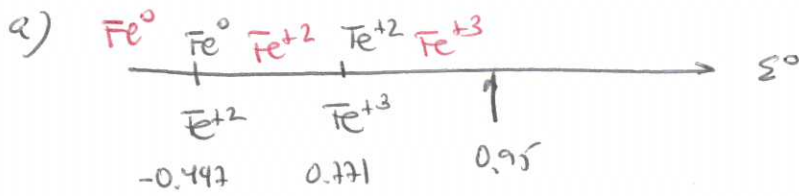 a) Fe⁰ Fe⁰ Fe⁺² Fe⁺² Fe⁺³
ε⁰
Fe⁺² Fe⁺³
-0.447 0.771 0,95